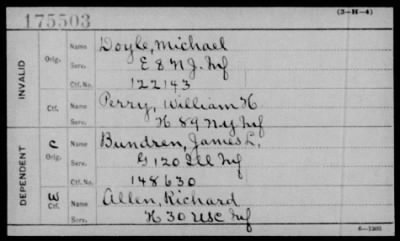 175503
(3-H-4)
INVALID
Orig.
Name Doyle, Michael
Serv. E 8 N J. Inf
Ctf. No. 122143
Ctf.
Name Perry, William H
Serv. H 89 N Y Inf
DEPENDENT
C
Orig.
Name Bundren, James L.
Serv. G 120 Ill Inf
Ctf. No. 148630
W
Ctf.
Name Allen, Richard
Serv. H 30 USC Inf